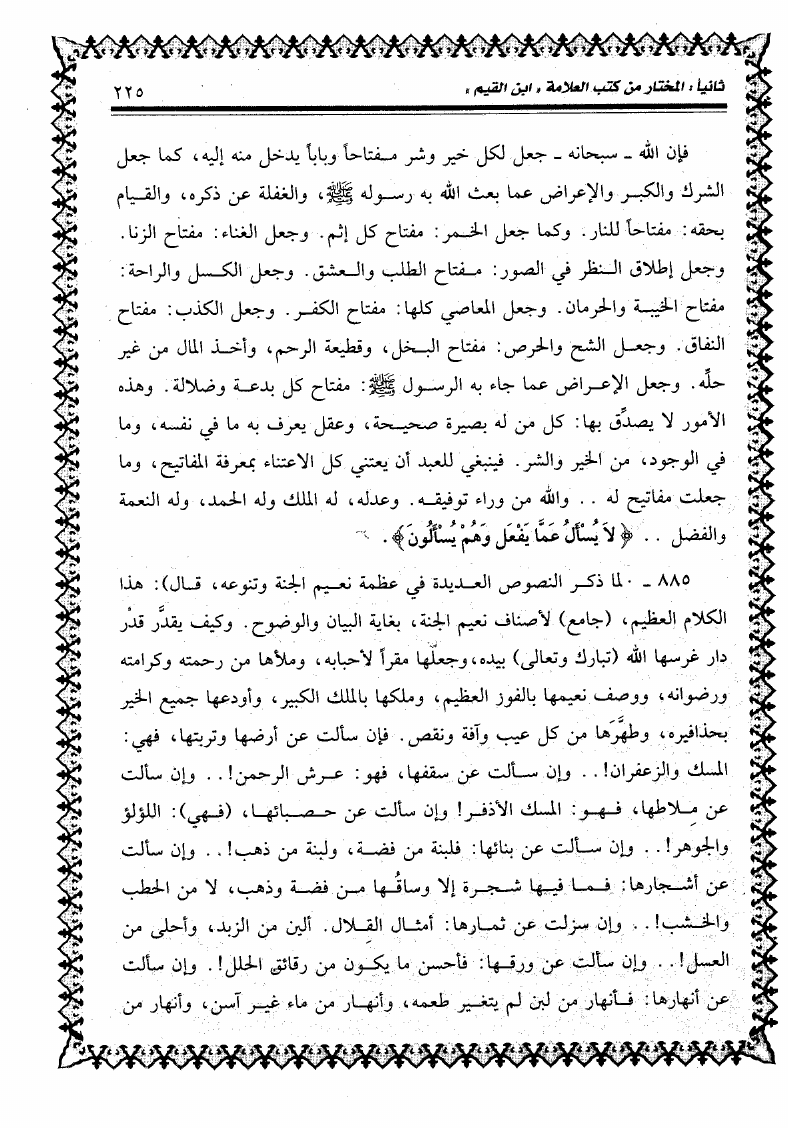 ثانياً : المختار من كتب العلامة « ابن القيم »
٢٢٥
فإن الله ـ سبحانه ـ جعل لكل خير وشر مفتاحاً وباباً يدخل منه إليه، كما جعل
الشرك والكبر والإعراض عما بعث الله به رسوله ﷺ، والغفلة عن ذكره، والقيام
بحقه: مفتاحاً للنار. وكما جعل الخمر: مفتاح كل إثم. وجعل الغناء: مفتاح الزنا.
وجعل إطلاق النظر في الصور: مفتاح الطلب والعشق. وجعل الكسل والراحة:
مفتاح الخيبة والحرمان. وجعل المعاصي كلها: مفتاح الكفر. وجعل الكذب: مفتاح
النفاق. وجعل الشح والحرص: مفتاح البخل، وقطيعة الرحم، وأخذ المال من غير
حلّه. وجعل الإعراض عما جاء به الرسول ﷺ: مفتاح كل بدعة وضلالة. وهذه
الأمور لا يصدِّق بها: كل من له بصيرة صحيحة، وعقل يعرف به ما في نفسه، وما
في الوجود، من الخير والشر. فينبغي للعبد أن يعتني كل الاعتناء بمعرفة المفاتيح، وما
جعلت مفاتيح له .. والله من وراء توفيقه. وعدله، له الملك وله الحمد، وله النعمة
والفضل .. ﴿ لَا يُسْأَلُ عَمَّا يَفْعَل وَهُمْ يُسْأَلُونَ﴾.
٨٨٥ ـ لما ذكر النصوص العديدة في عظمة نعيم الجنة وتنوعه، قال): هذا
الكلام العظيم، (جامع) لأصناف نعيم الجنة، بغاية البيان والوضوح. وكيف يقدَّر قدْر
دار غرسها الله (تبارك وتعالى) بيده، وجعلها مقراً لأحبابه، وملأها من رحمته وكرامته
ورضوانه، ووصف نعيمها بالفوز العظيم، وملكها بالملك الكبير، وأودعها جميع الخير
بحذافيره، وطهَّرَها من كل عيب وآفة ونقص. فإن سألت عن أرضها وتربتها، فهي:
المسك والزعفران!.. وإن سألت عن سقفها، فهو: عرش الرحمن!.. وإن سألت
عن مِلاطها، فهو: المسك الأذفر! وإن سألت عن حصبائها، (فهي): اللؤلؤ
والجوهر!.. وإن سألت عن بنائها: فلبنة من فضة، ولبنة من ذهب!.. وإن سألت
عن أشجارها: فما فيها شجرة إلا وساقُها من فضة وذهب، لا من الحطب
والخشب!.. وإن سزلت عن ثمارها: أمثال القِلال. ألين من الزبد، وأحلى من
العسل!.. وإن سألت عن ورقها: فأحسن ما يكون من رقائق الحلل!. وإن سألت
عن أنهارها: فأنهار من لبن لم يتغير طعمه، وأنهار من ماء غير آسن، وأنهار من